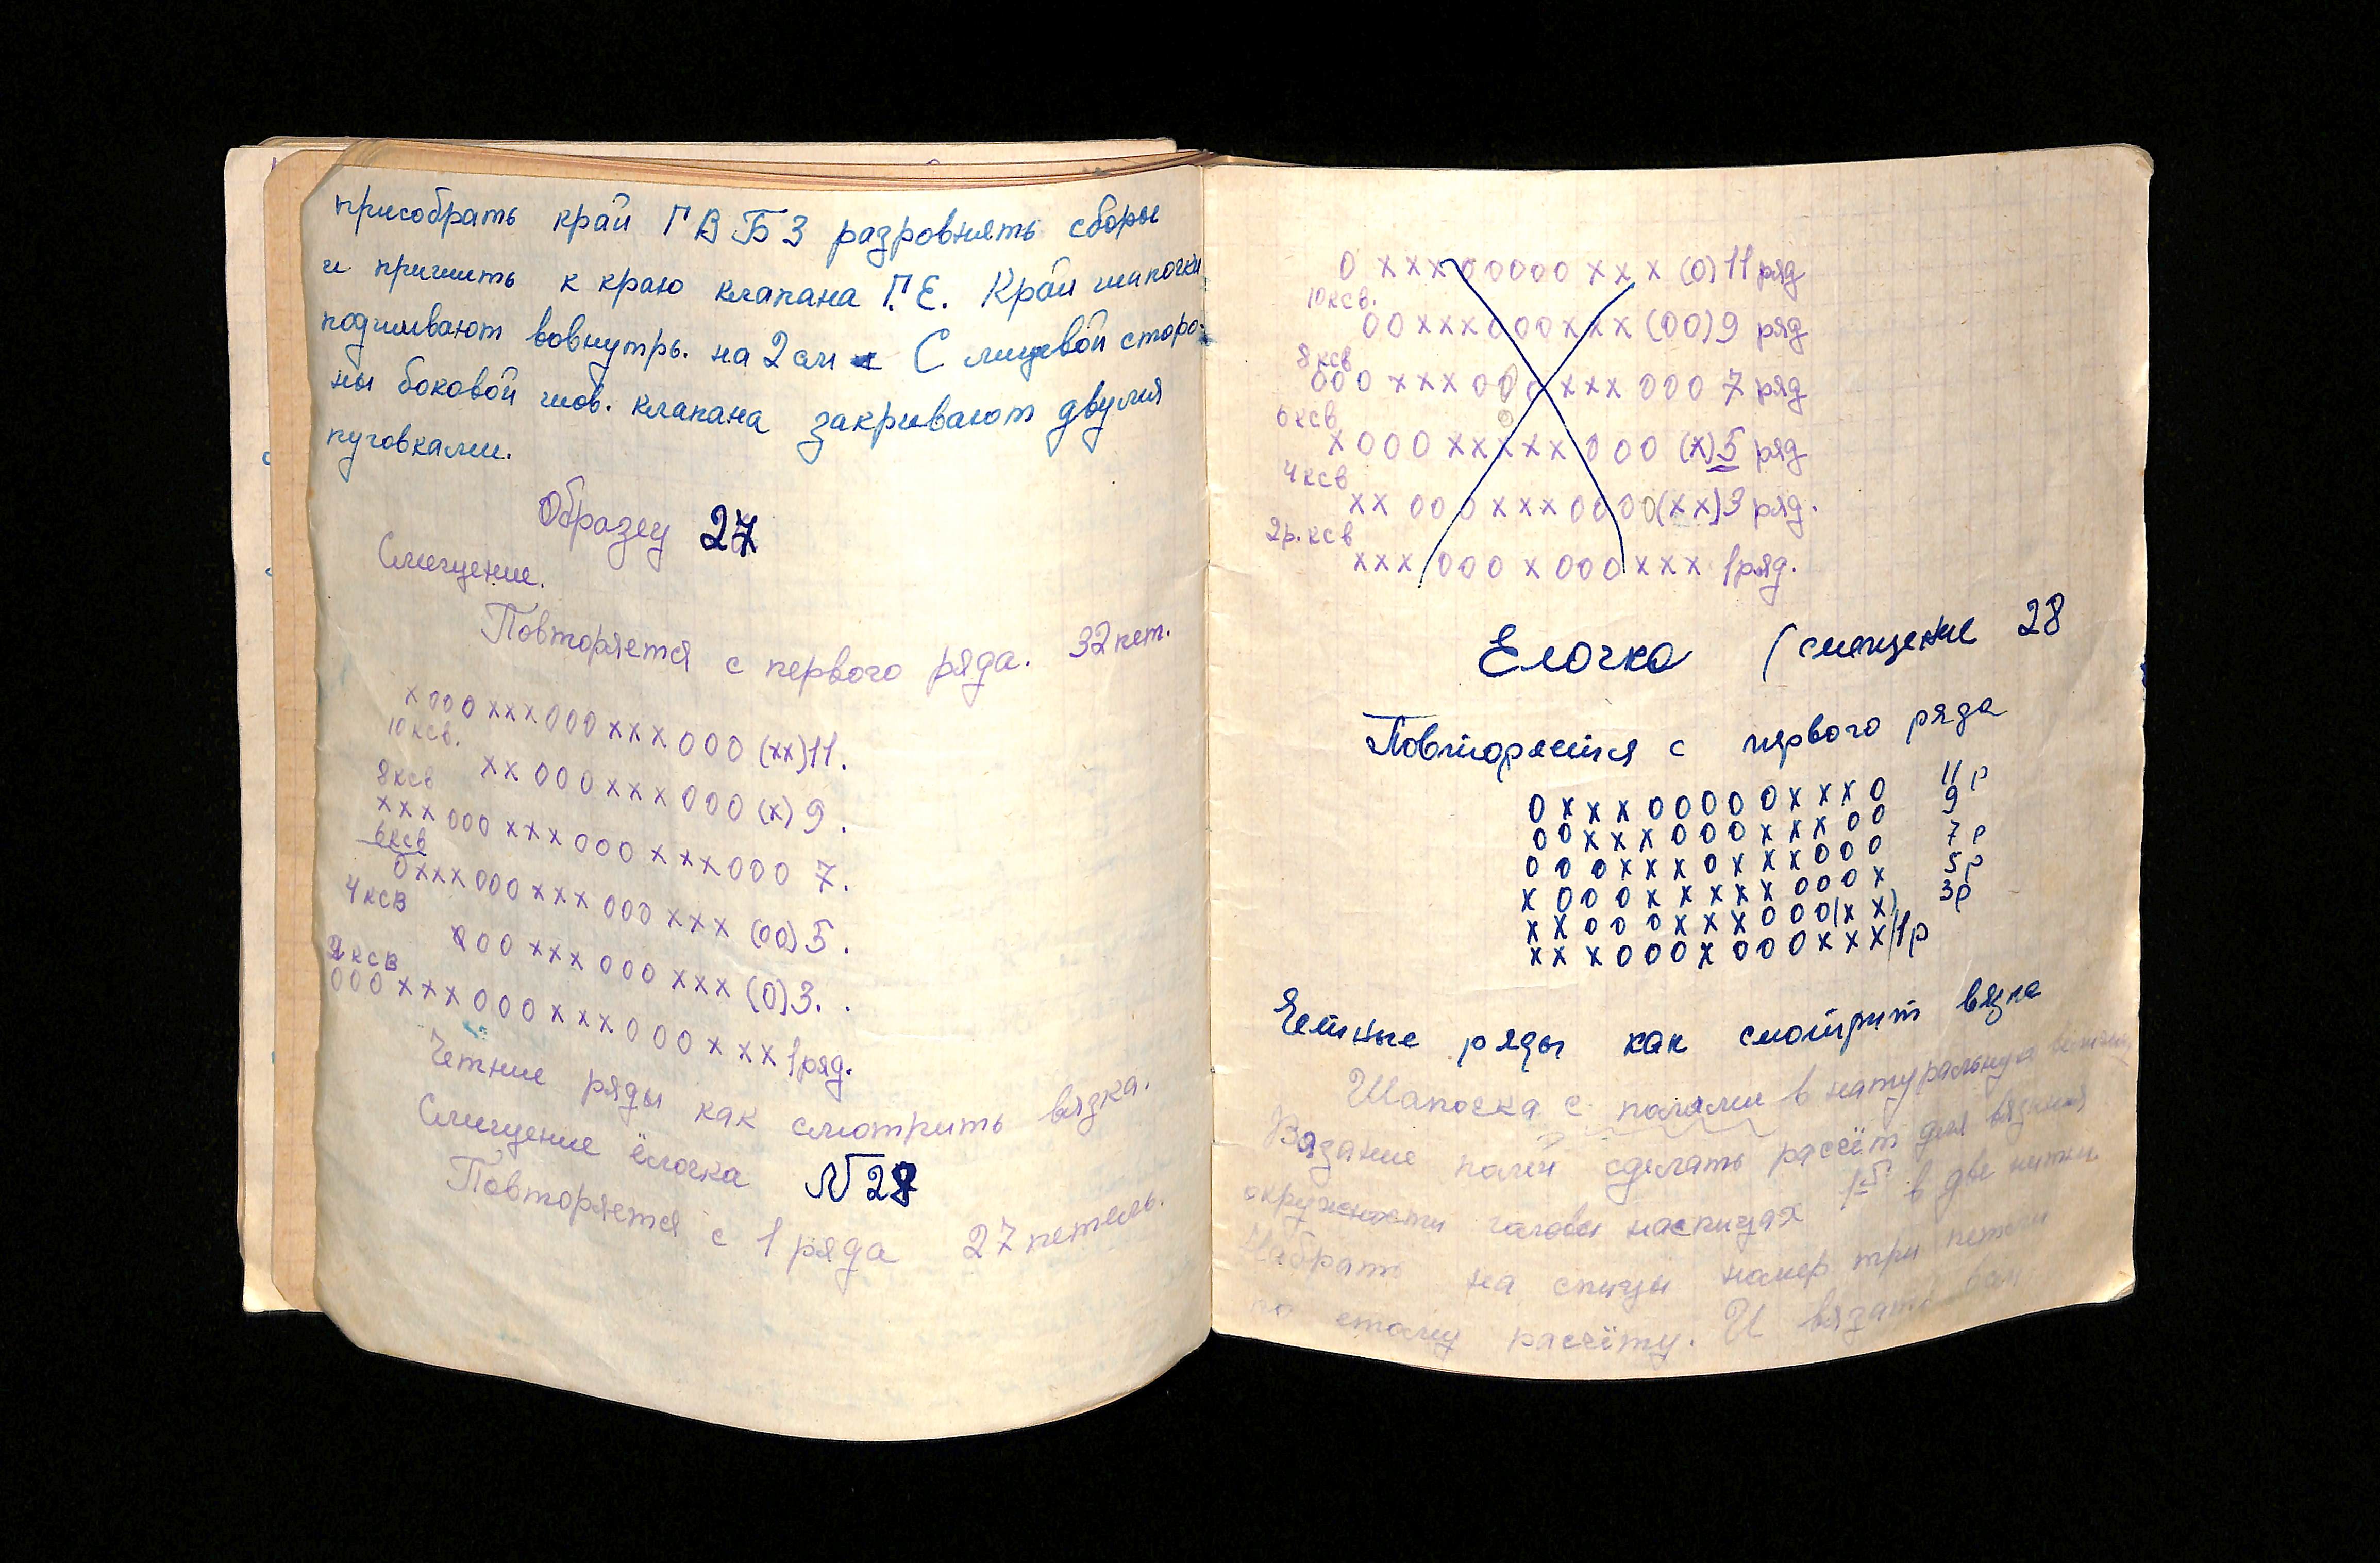 присобрать край ГВБЗ разровнять сборы
и пришить к краю клапана Г.Е. Край шапочки
подшивают вовнутрь. на 2 см С лицевой сторо-
ны боковой шов. клапана закривают двумя
пуговками.
Образец 27
Смещение.
Повторяется с первого ряда. 32 пет.
х000ххх000ххх000(хх)11.
10 ксв.
хх000ххх000(х)9.
8 ксв
ххх000ххх000ххх000 7.
6 ксв
0ххх000ххх000ххх(00)5.
4 ксв
х00ххх000ххх(0)3.
2 ксв
000ххх000ххх000ххх 1 ряд.
Четние ряды как смотрить вязка.
Смещение ёлочка №28
Повторяется с 1 ряда 27 петель.
0ххх00000ххх(0)11 ряд
10 ксв.
00ххх000ххх(00)9 ряд
8 ксв
000ххх000ххх000 7 ряд
6 ксв
х000ххххх000(х)5 ряд
4 ксв
хх000ххх0000(хх)3 ряд.
2р. ксв
ххх000х000ххх 1 ряд.
Елочка (смещение 28
Повторяется с первого ряда
0ххх00000ххх0 11 р
00ххх000ххх00 9
000ххх0ххх000 7 р
х000ххххх000х 5 р
хх000ххх000(хх) 3р
ххх000х000ххх) 1 р
Четные ряды как смотрит вязка
Шапочка с полями в натуральную
Вязание полей сделать рассёт для вязания
окружности головы наспицах в две нитки
Набрать на спицы номер три петли
по етому рассёту. И вязать